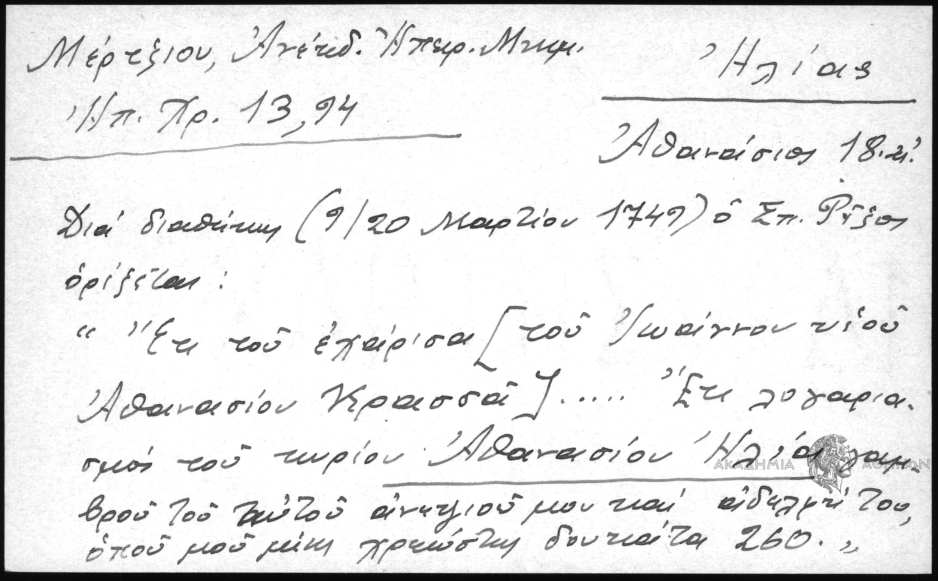 Μέρτζιου, Ἀνέκδ. Ἠπειρ. Μνημ.
Ἠπ. Χρ. 13, 94
Ἠλίας
Ἀθανάσιος 18. αἰ.
Διά διαθήκης (9/20 Μαρτίου 1749) ὁ Σπ. Ρῖζος
ὁρίζεται:
“ Ἔτι τοῦ ἐχάρισα [τοῦ Ἰωάννου υἱοῦ
Ἀθανασίου Κρασσᾶ] ..... Ἔτι λογαρια-
σμός τοῦ κυρίου Ἀθανασίου Ἠλία γαμ-
βροῦ τοῦ αὐτοῦ ἀνεψιοῦ μου καί ἀδελφή του,
ὁποῦ μοῦ μένει χρεώστης δουκάτα 260. „
ΑΚΑΔΗΜΙΑ ΑΘΗΝΩΝ